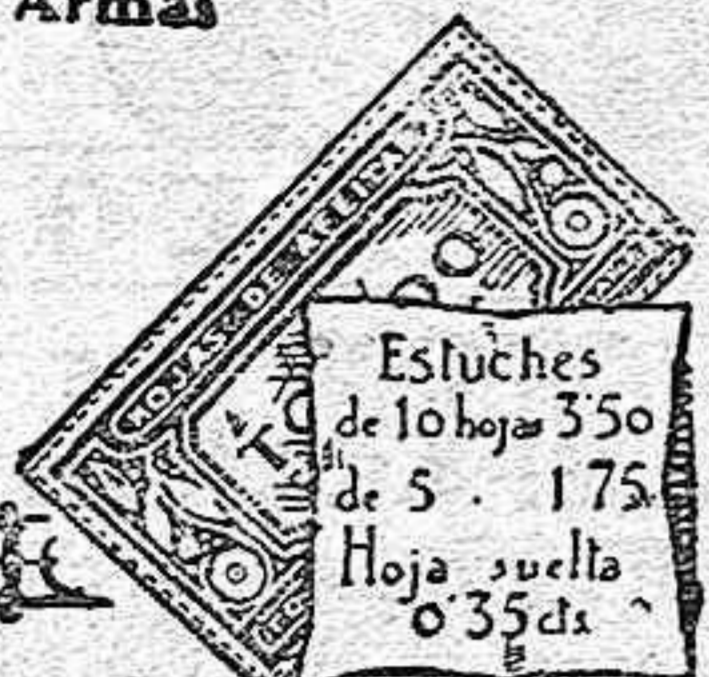 Armas
HOJAS DE AFEITAR
Estuches
de 10 hojas 3'50
de 5 . 1'75
Hoja suelta
0'35 cts